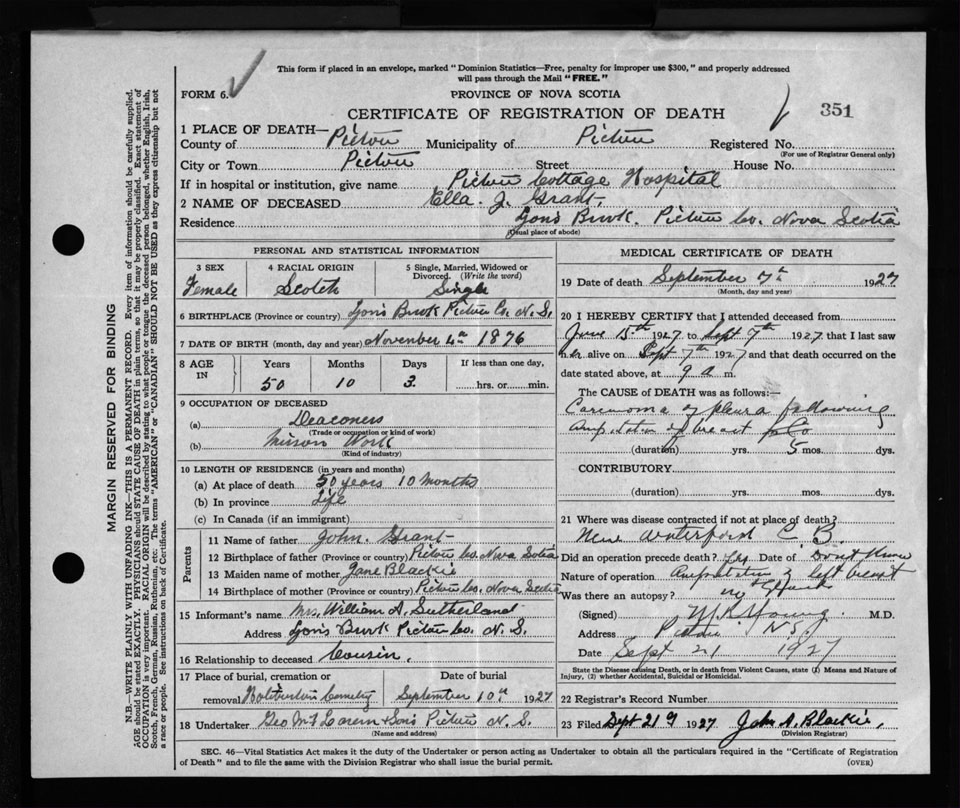 This form if placed in an envelope, marked "Dominion Statistics—Free, penalty for improper use $300," and properly addressed
will pass through the Mail "FREE."
FORM 6.
PROVINCE OF NOVA SCOTIA
CERTIFICATE OF REGISTRATION OF DEATH
351
1 PLACE OF DEATH—
County of Pictou Municipality of Pictou Registered No.
(For use of Registrar General only)
City or Town Pictou Street House No.
If in hospital or institution, give name Pictou Cottage Hospital
2 NAME OF DECEASED Ella. J. Grant.
Residence Lyon's Brook. Pictou Co. Nova Scotia
(Usual place of abode)
PERSONAL AND STATISTICAL INFORMATION
3 SEX 4 RACIAL ORIGIN 5 Single, Married, Widowed or
Divorced. (Write the word)
Female Scotch Single
6 BIRTHPLACE (Province or country) Lyon's Brook Pictou Co. N.S.
7 DATE OF BIRTH (month, day and year) November 4th 1876
8 AGE IN Years Months Days If less than one day,
50 10 3. hrs. or min.
9 OCCUPATION OF DECEASED
(a) Deaconess
(Trade or occupation or kind of work)
(b) Mission Work
(Kind of industry)
10 LENGTH OF RESIDENCE (in years and months)
(a) At place of death 50 years 10 months
(b) In province Life
(c) In Canada (if an immigrant)
Parents
11 Name of father John. Grant
12 Birthplace of father (Province or country) Pictou Co. Nova Scotia
13 Maiden name of mother Jane Blackie
14 Birthplace of mother (Province or country) Pictou Co. Nova Scotia
15 Informant's name Mrs. William A. Sutherland
Address Lyon's Brook Pictou Co. N.S.
16 Relationship to deceased Cousin.
17 Place of burial, cremation or Date of burial
removal Cemetery September 10th 1927
18 Undertaker Geo & Sons Pictou N.S.
(Name and address)
MEDICAL CERTIFICATE OF DEATH
19 Date of death September 7th 1927
(Month, day and year)
20 I HEREBY CERTIFY that I attended deceased from
June 15th 1927 to Sept 7th 1927 that I last saw
her alive on Sept 7th 1927 and that death occurred on the
date stated above, at 9 a m.
The CAUSE OF DEATH was as follows:
Carcinoma of pleura following
Amputation of breast
(duration) yrs. 5 mos. dys.
CONTRIBUTORY
(duration) yrs. mos. dys.
21 Where was disease contracted if not at place of death?
New Waterford C B
Did an operation precede death? Yes Date of Don't know
Nature of operation Amputation of left breast
Was there an autopsy? no
(Signed) Young M.D.
Address Pictou N.S.
Date Sept 21 1927
State the Disease causing Death, or in death from Violent Causes, state (1) Means and Nature of
Injury, (2) whether Accidental, Suicidal or Homicidal.
22 Registrar's Record Number
23 Filed Sept 21 1927 John A. Blackie,
(Division Registrar)
SEC. 46—Vital Statistics Act makes it the duty of the Undertaker or person acting as Undertaker to obtain all the particulars required in the "Certificate of Registration
of Death" and to file the same with the Division Registrar who shall issue the burial permit.
(OVER)
MARGIN RESERVED FOR BINDING
N.B.—WRITE PLAINLY WITH UNFADING INK—THIS IS A PERMANENT RECORD. Every item of information should be carefully supplied.
AGE should be stated EXACTLY. PHYSICIANS should STATE CAUSE OF DEATH in plain terms, so that it may be properly classified. Exact statement of
OCCUPATION is very important. RACIAL ORIGIN will be described by stating to what people or tongue the deceased person belonged, whether English, Irish,
Scotch, French, German, Russian, Ruthenian, etc. The terms "AMERICAN" or "CANADIAN" SHOULD NOT BE USED as they express citizenship but not
a race or people. See instructions on back of Certificate.